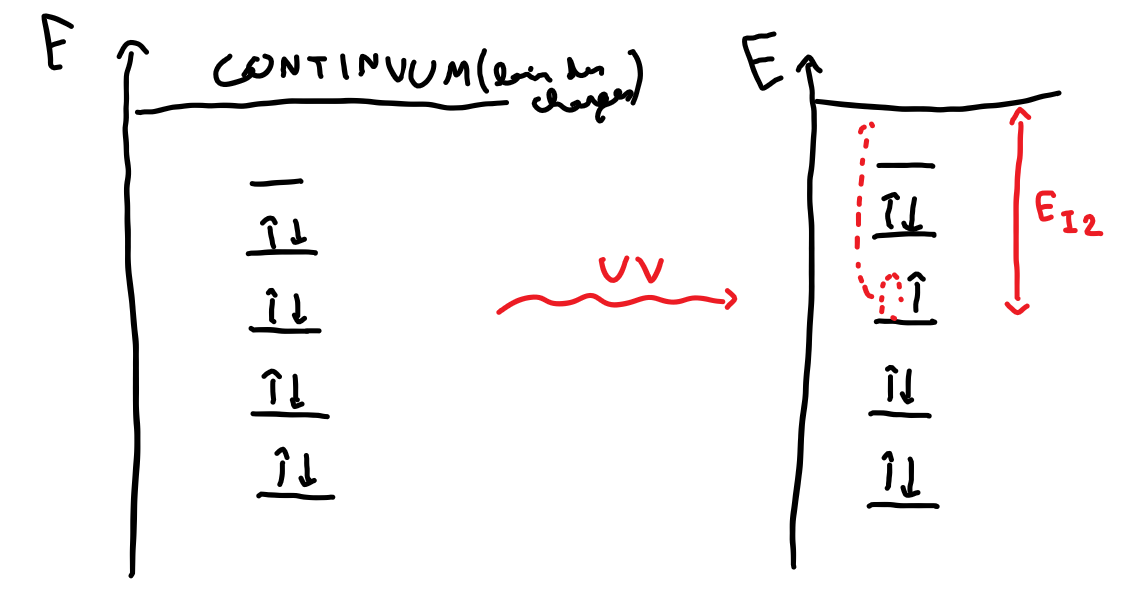 E
CONTINUUM (loin des
charges)
E
UV
E I2